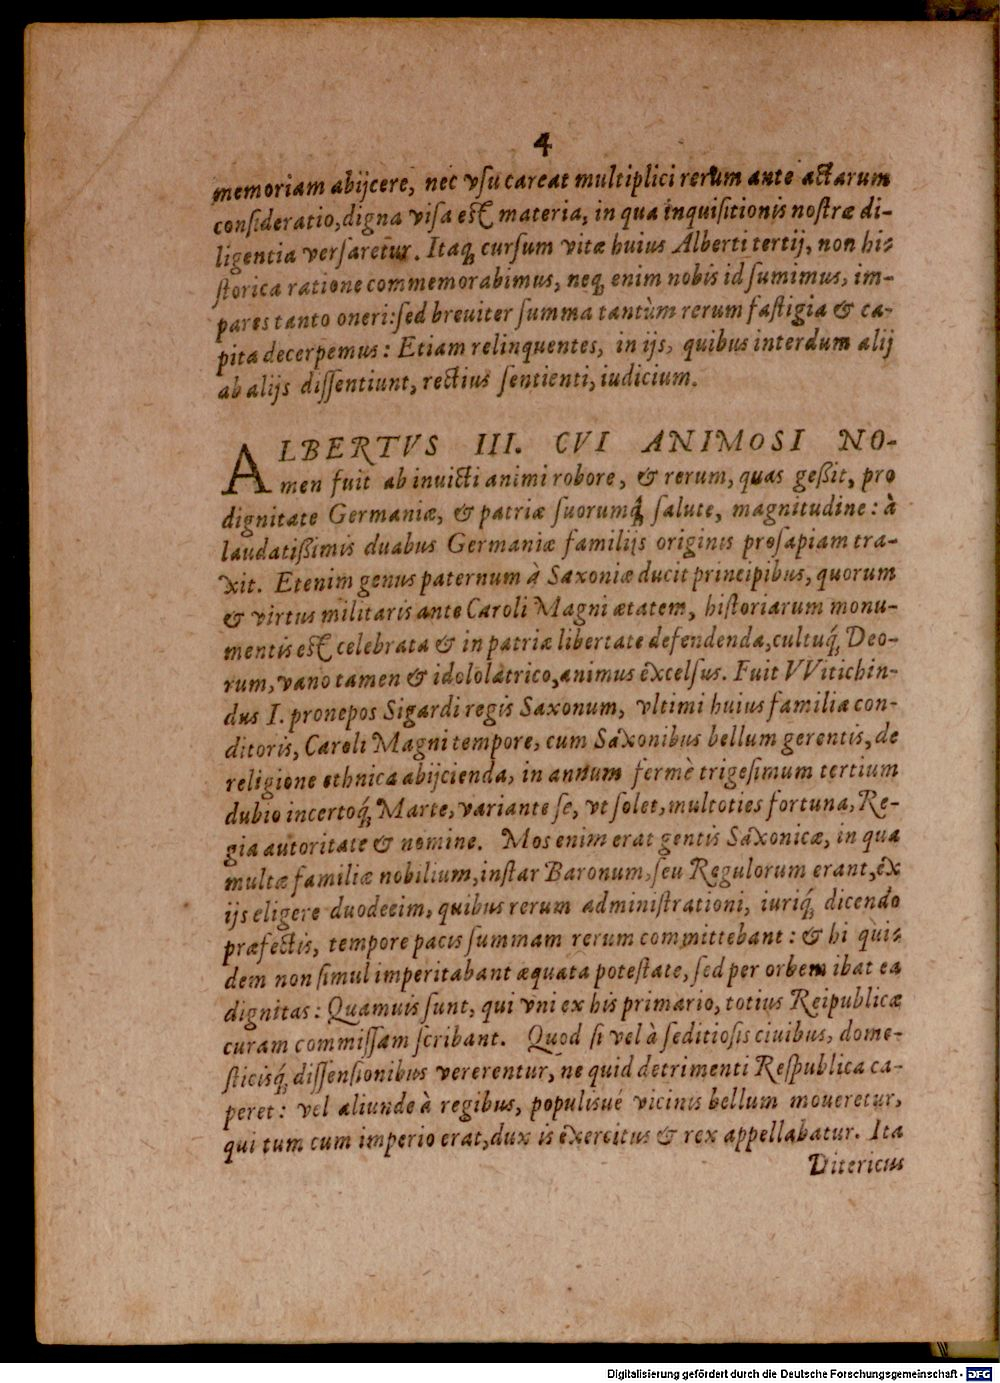 4
memoriam abijcere, nec vſu careat multiplici rerum ante actarum
conſideratio, digna viſa eſt materia, in qua inquiſitionis noſtræ di-
ligentia verſaretur. Itaq́; curſum vitæ huius Alberti tertij, non hi-
ſtorica ratione commemorabimus, neq́; enim nobis id ſumimus, im-
pares tanto oneri: ſed breuiter ſumma tantùm rerum faſtigia & ca-
pita decerpemus: Etiam relinquentes, in ijs, quibus interdum alij
ab alijs diſſentiunt, rectius ſentienti, iudicium.
ALBERTVS III. CVI ANIMOSI NO-
men fuit ab inuicti animi robore, & rerum, quas geßit, pro
dignitate Germaniæ, & patriæ ſuorumq́; ſalute, magnitudine: à
laudatißimis duabus Germaniæ familijs originis proſapiam tra-
xit. Etenim genus paternum à Saxoniæ ducit principibus, quorum
& virtus militaris ante Caroli Magni ætatem, hiſtoriarum monu-
mentis eſt celebrata & in patriæ libertate defendenda, cultuq́; Deo-
rum, vano tamen & idololatrico, animus excelſus. Fuit VVitichin-
dus I. pronepos Sigardi regis Saxonum, vltimi huius familiæ con-
ditoris, Caroli Magni tempore, cum Saxonibus bellum gerentis, de
religione ethnica abijcienda, in annum fermè trigeſimum tertium
dubio incertoq́; Marte, variante ſe, vt ſolet, multoties fortuna, Re-
gia autoritate & nomine. Mos enim erat gentis Saxonicæ, in qua
multæ familiæ nobilium, inſtar Baronum, ſeu Regulorum erant, ex
ijs eligere duodecim, quibus rerum adminiſtrationi, iuriq́; dicendo
præfectis, tempore pacis ſummam rerum committebant: & hi qui-
dem non ſimul imperitabant æquata poteſtate, ſed per orbem ibat ea
dignitas: Quamuis ſunt, qui vni ex his primario, totius Reipublicæ
curam commiſſam ſcribant. Quod ſi vel à ſeditioſis ciuibus, dome-
ſticisq́; diſſenſionibus vererentur, ne quid detrimenti Reſpublica ca-
peret: vel aliunde à regibus, populisué vicinis bellum moueretur,
qui tum cum imperio erat, dux is exercitus & rex appellabatur. Ita
Ditericus
Digitalisierung gefördert durch die Deutsche Forschungsgemeinschaft - DFG